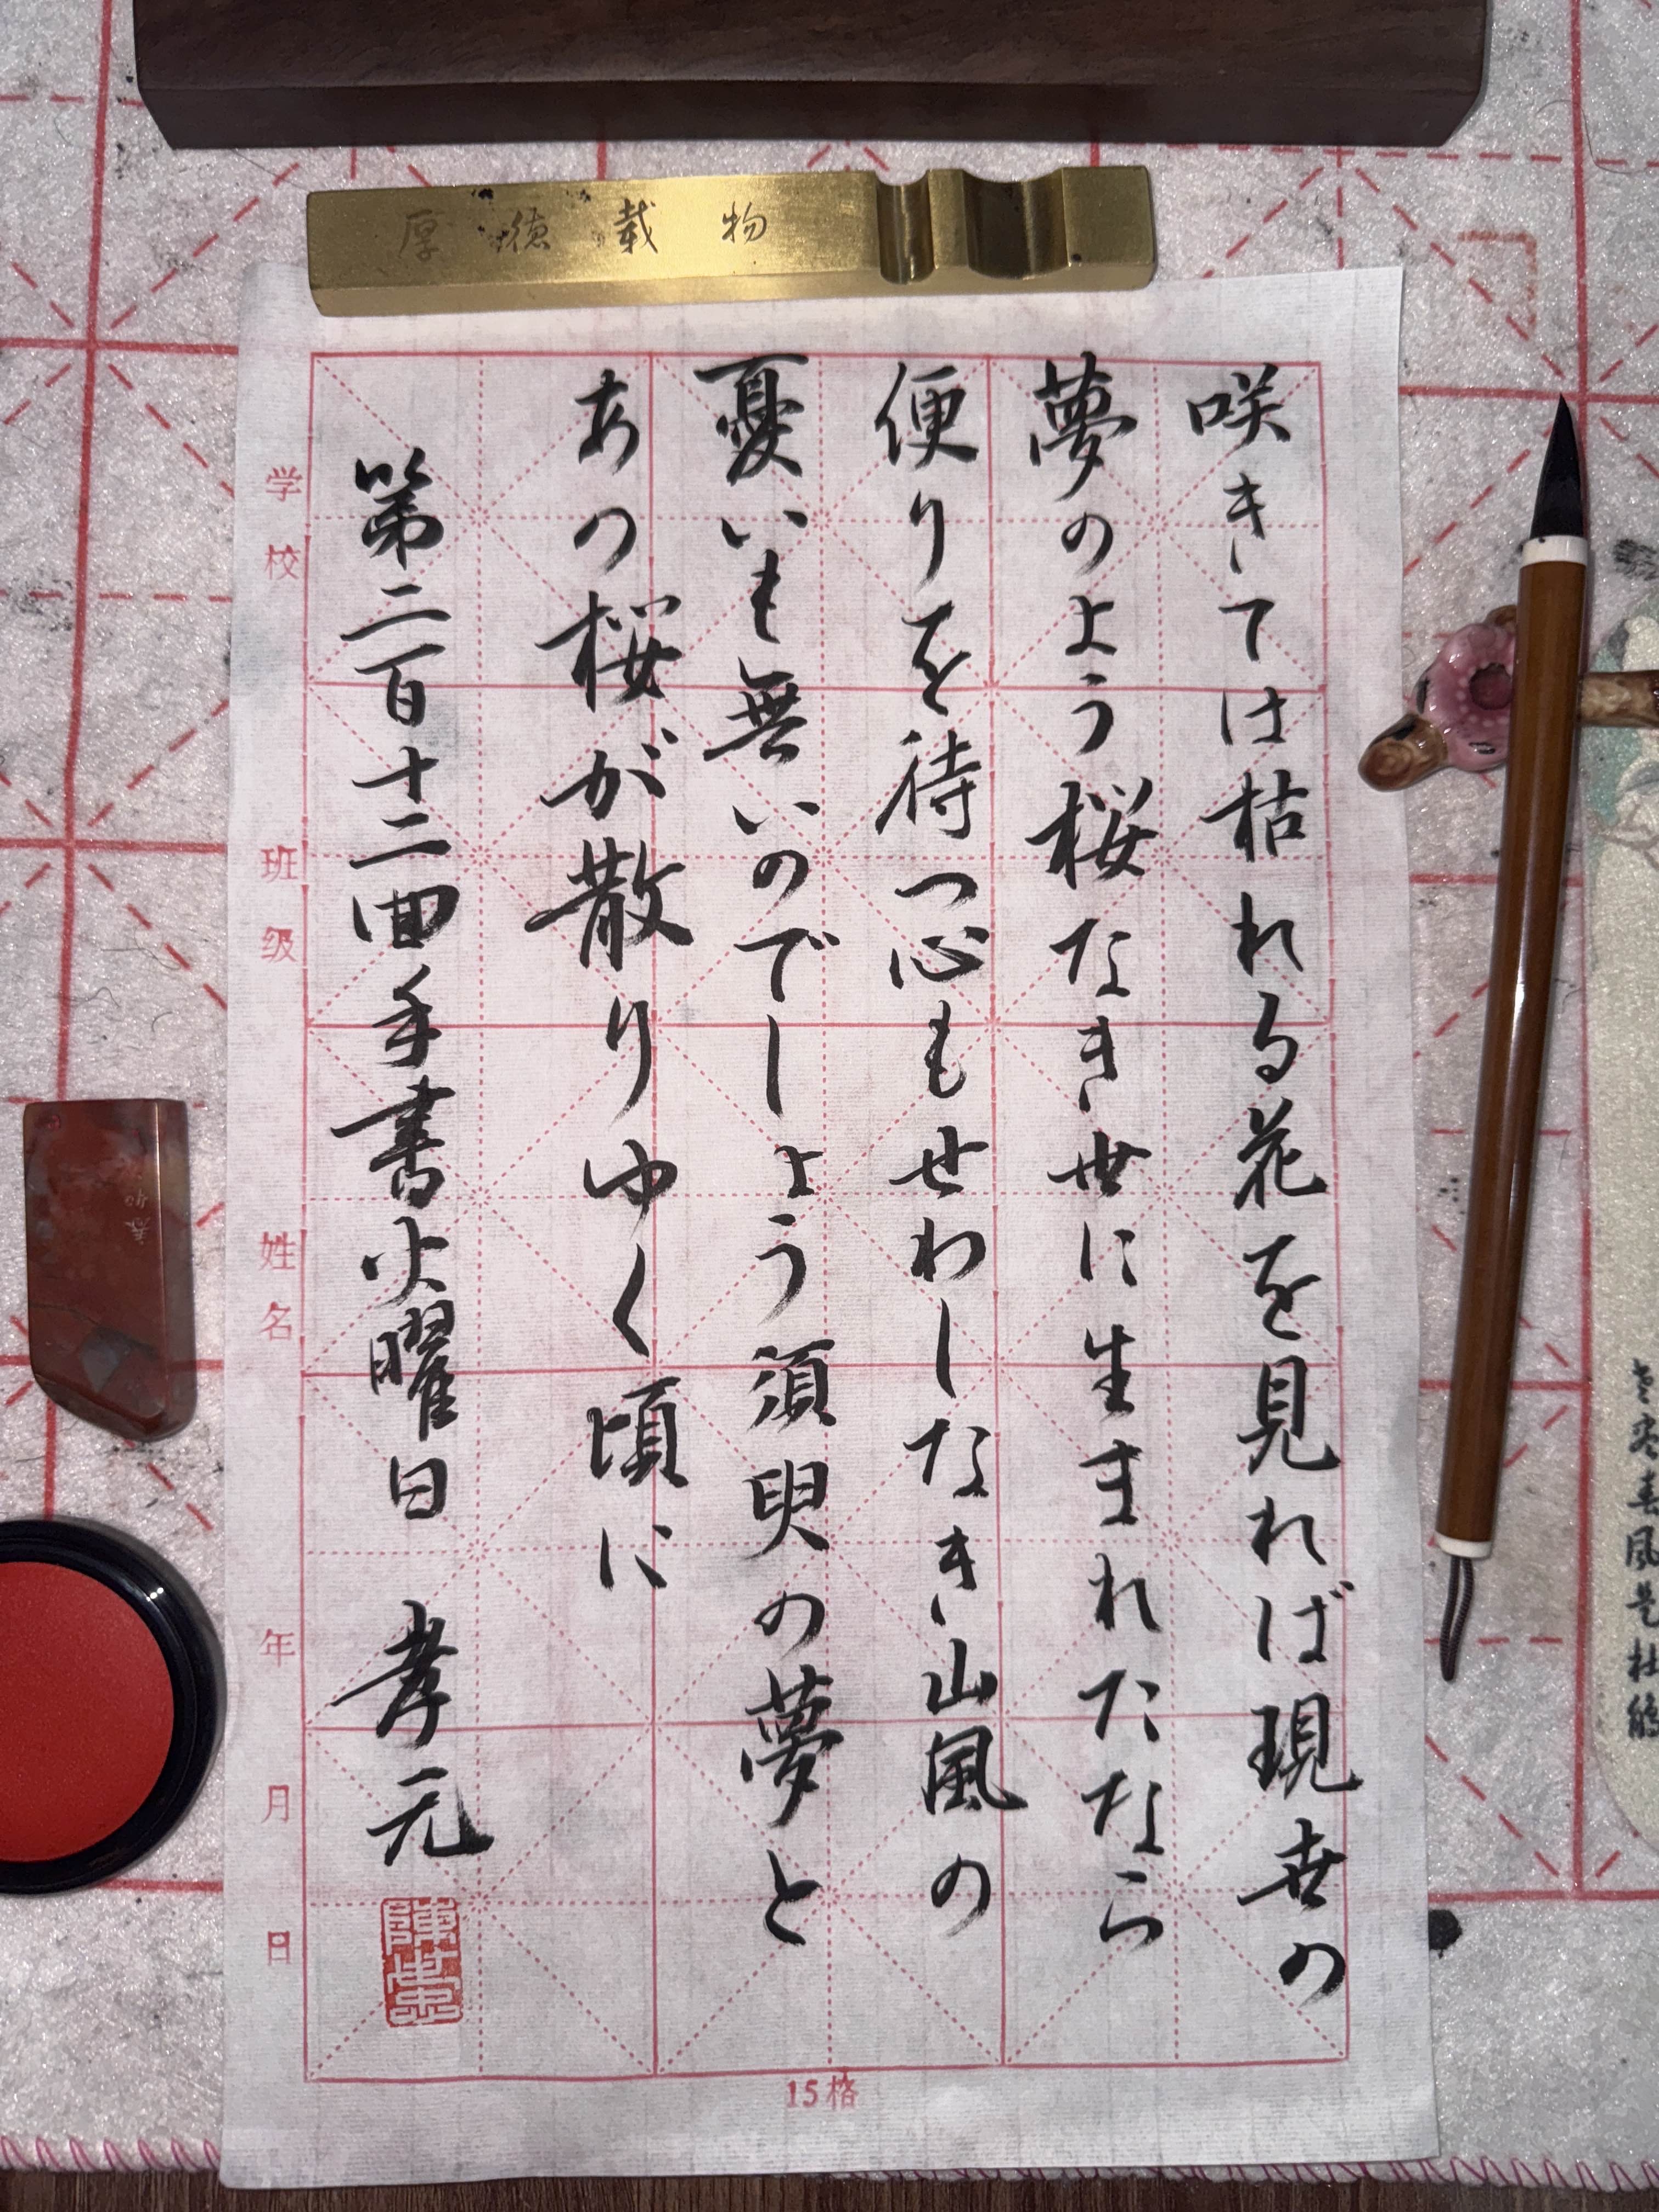 厚德载物
咲きては枯れる花を見れば現世の
夢のよう桜なき世に生まれたなら
便りを待つ心もせわしなき山風の
憂いも無いのでしょう須臾の夢と
あの桜が散りゆく頃に
第二百十二回手書火曜日 孝元
学校
班级
姓名
年
月
日
15格
春風是杜鵑